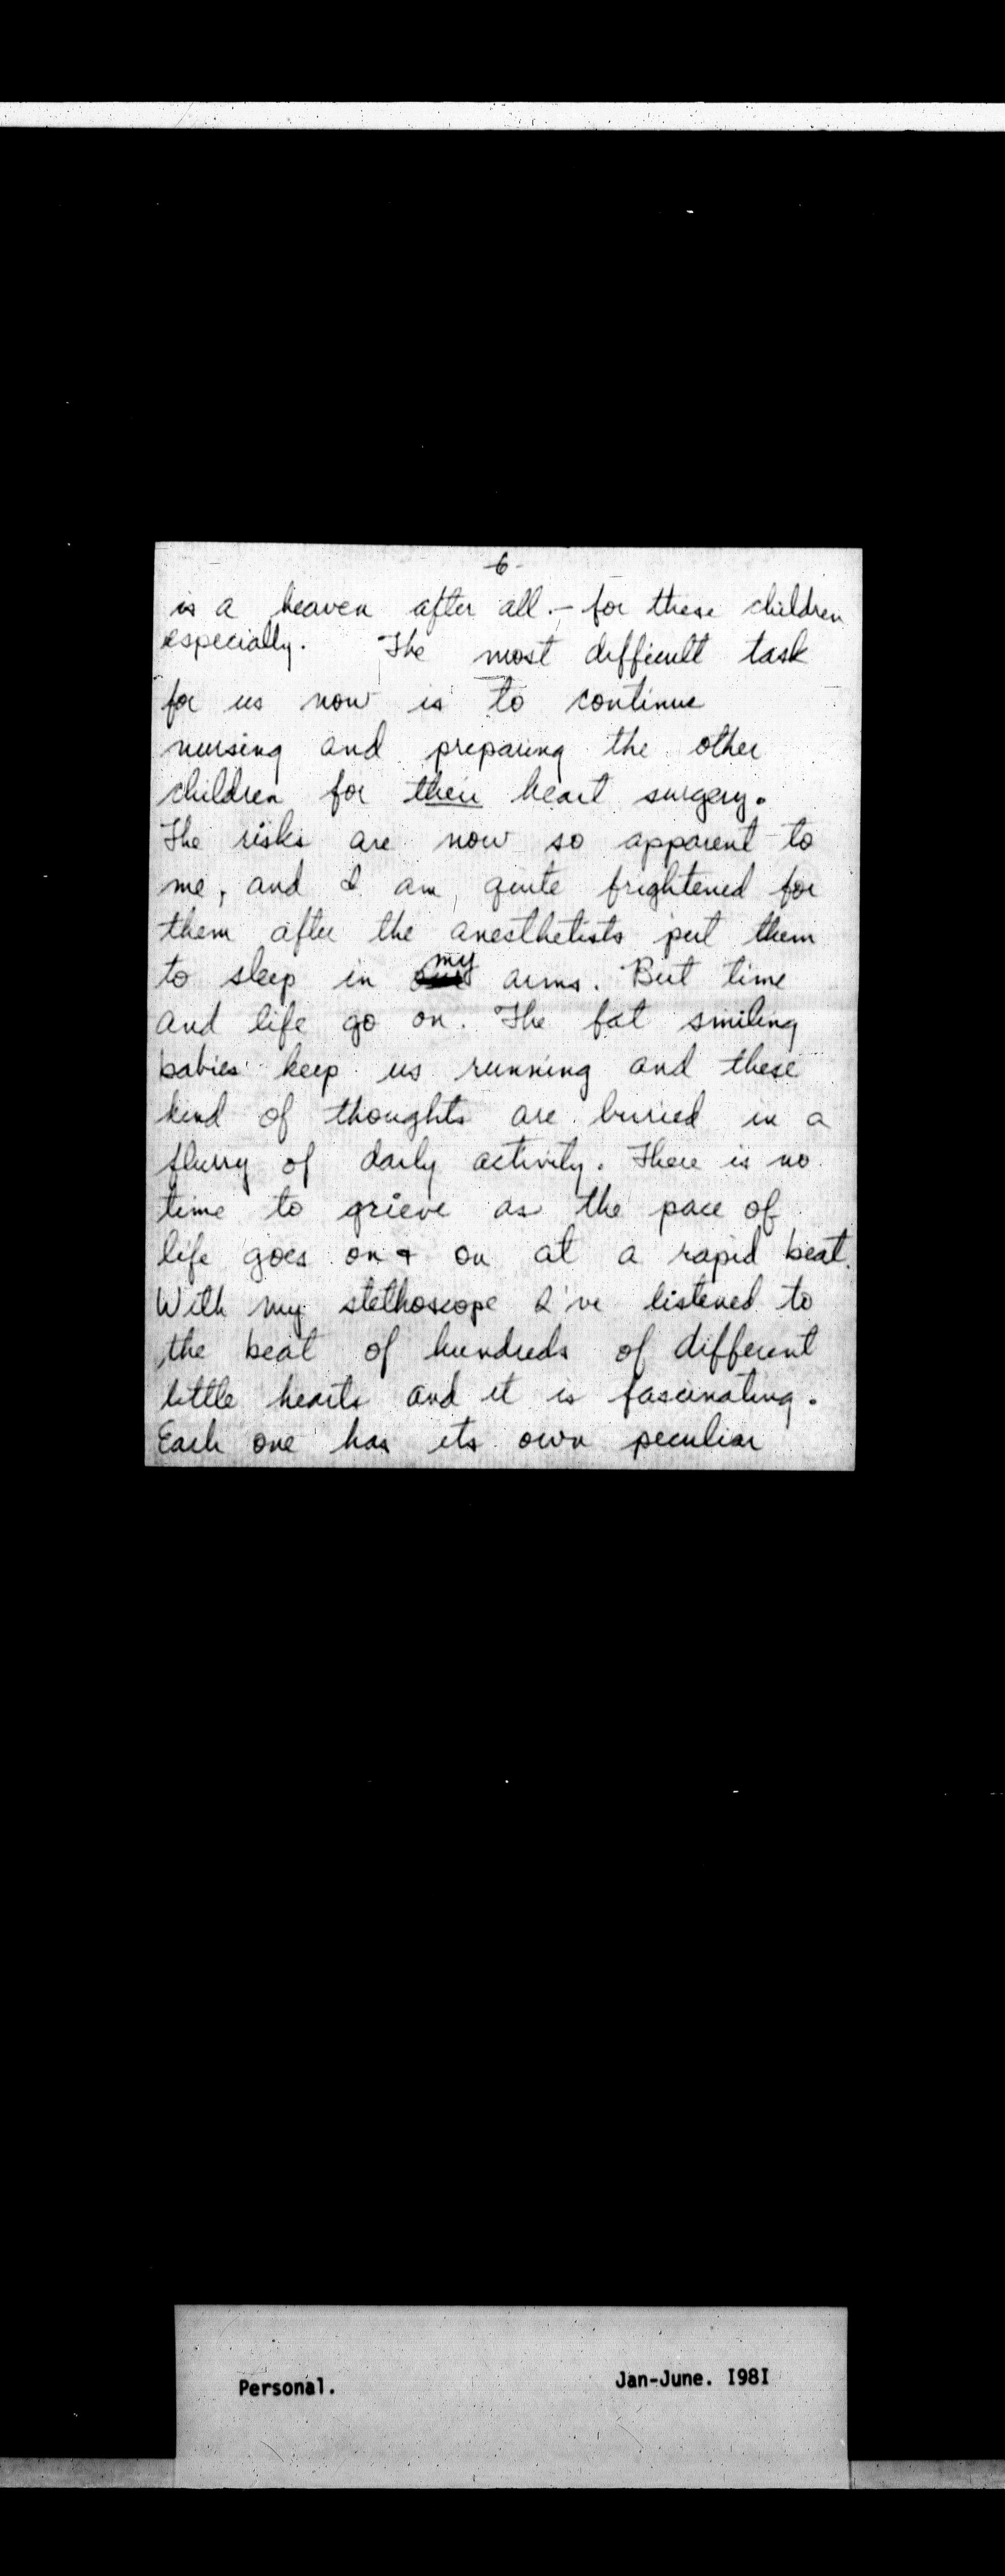 -6-
is a heaven after all. - for these children
especially. The most difficult task
for us now is to continue
nursing and preparing the other
children for their heart surgery.
The risks are now so apparent to
me, and I am quite frightened for
them after the anesthetists put them
to sleep in my arms. But time
and life go on. The fat smiling
babies keep us running and these
kind of thoughts are buried in a
flurry of daily activity. There is no
time to grieve as the pace of
life goes on & on at a rapid beat.
With my stethoscope I've listened to
the beat of hundreds of different
little hearts and it is fascinating.
Each one has its own peculiar
Personal. Jan-June. I98I